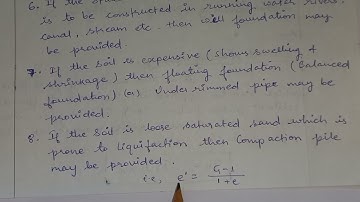 6. If the
is to be constructed in running water rivers,
canal, stream etc. then well foundation may
be provided.
7. If the soil is expensive (shows swelling &
shrinkage) then floating foundation (balanced
foundation) (or) under rimmed pipe may be
provided.
8. If the soil is loose saturated sand which is
prone to liquifaction then compaction pile
may be provided.
i.e, e' = G-1 / 1+e